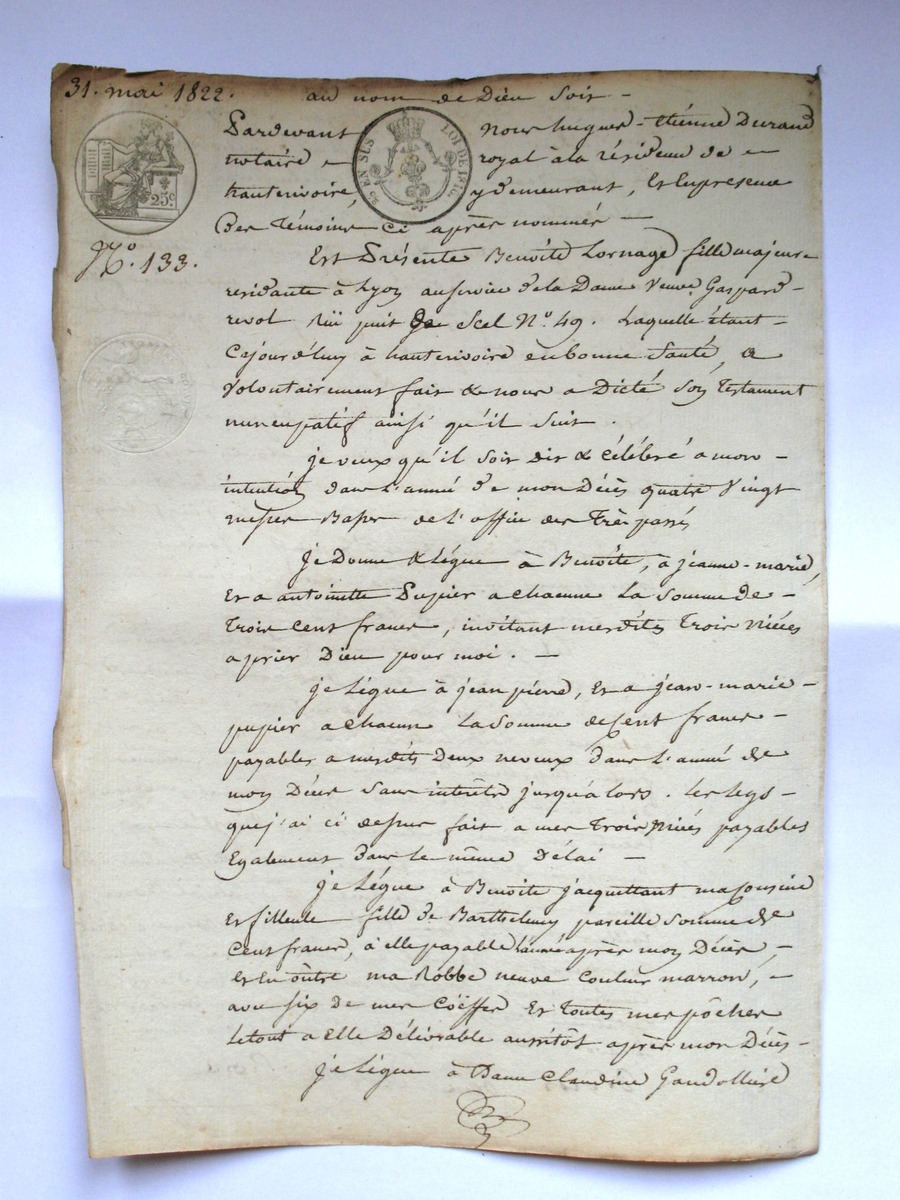 31. mai 1822. au nom de Dieu soit
Pardevant Nous hugues-étiènne Durand
notaire royal à la résidence de
hauterivoire, y demeurant, Et En presence
Des Témoins ci après nommés
LOI DE 1816
EN SUS
25c.
N.o 133.
Est Présente Benoîte Lornage fille majeure
residante à Lyon au service de la Dame Veuve Gaspard
revol Rüe puit De Scel N.o 49. Laquelle étant
Cejourd'huy à hauterivoire en bonne Santé, a
Volontairement fait & nous a Dicté Son Testament
nuncupatif ainsi qu'il suit.
je veux qu'il soit dit & célébré a mon
intention dans l'année de mon Décès quatre Vingt
messes Basses de l'office des Trèpassés
je Donne & Légue à Benoîte, à jeanne-marie,
Et a antoinette Pupier a chacune La Somme de
Trois Cent francs, invitant mesdites Trois Niéces
a prier Dieu pour moi.
je Légue à jean pierre, Et a jean-marie
pupier a chacun La Somme de Cent francs
payables a mesdits Deux neveux dans L'année de
mon Décès sans interêts jusqu'alors. Les legs
que j'ai ci dessus fait a mes Trois Niéces payables
Egalement dans le même Délai
je Légue à Benoite jacquettant ma Cousine
Et filleule fille de Barthelemy pareille Somme de
Cent francs, à elle payable l'année après mon Décès,
Et En oûtre ma Robbe neuve Couleur marron,
avec six de mes Coëffes Et Toutes mes pôches
Le tout a Elle Délivrable aussitôt après mon Décès
je Légue à Dame Claudine Gaudollière